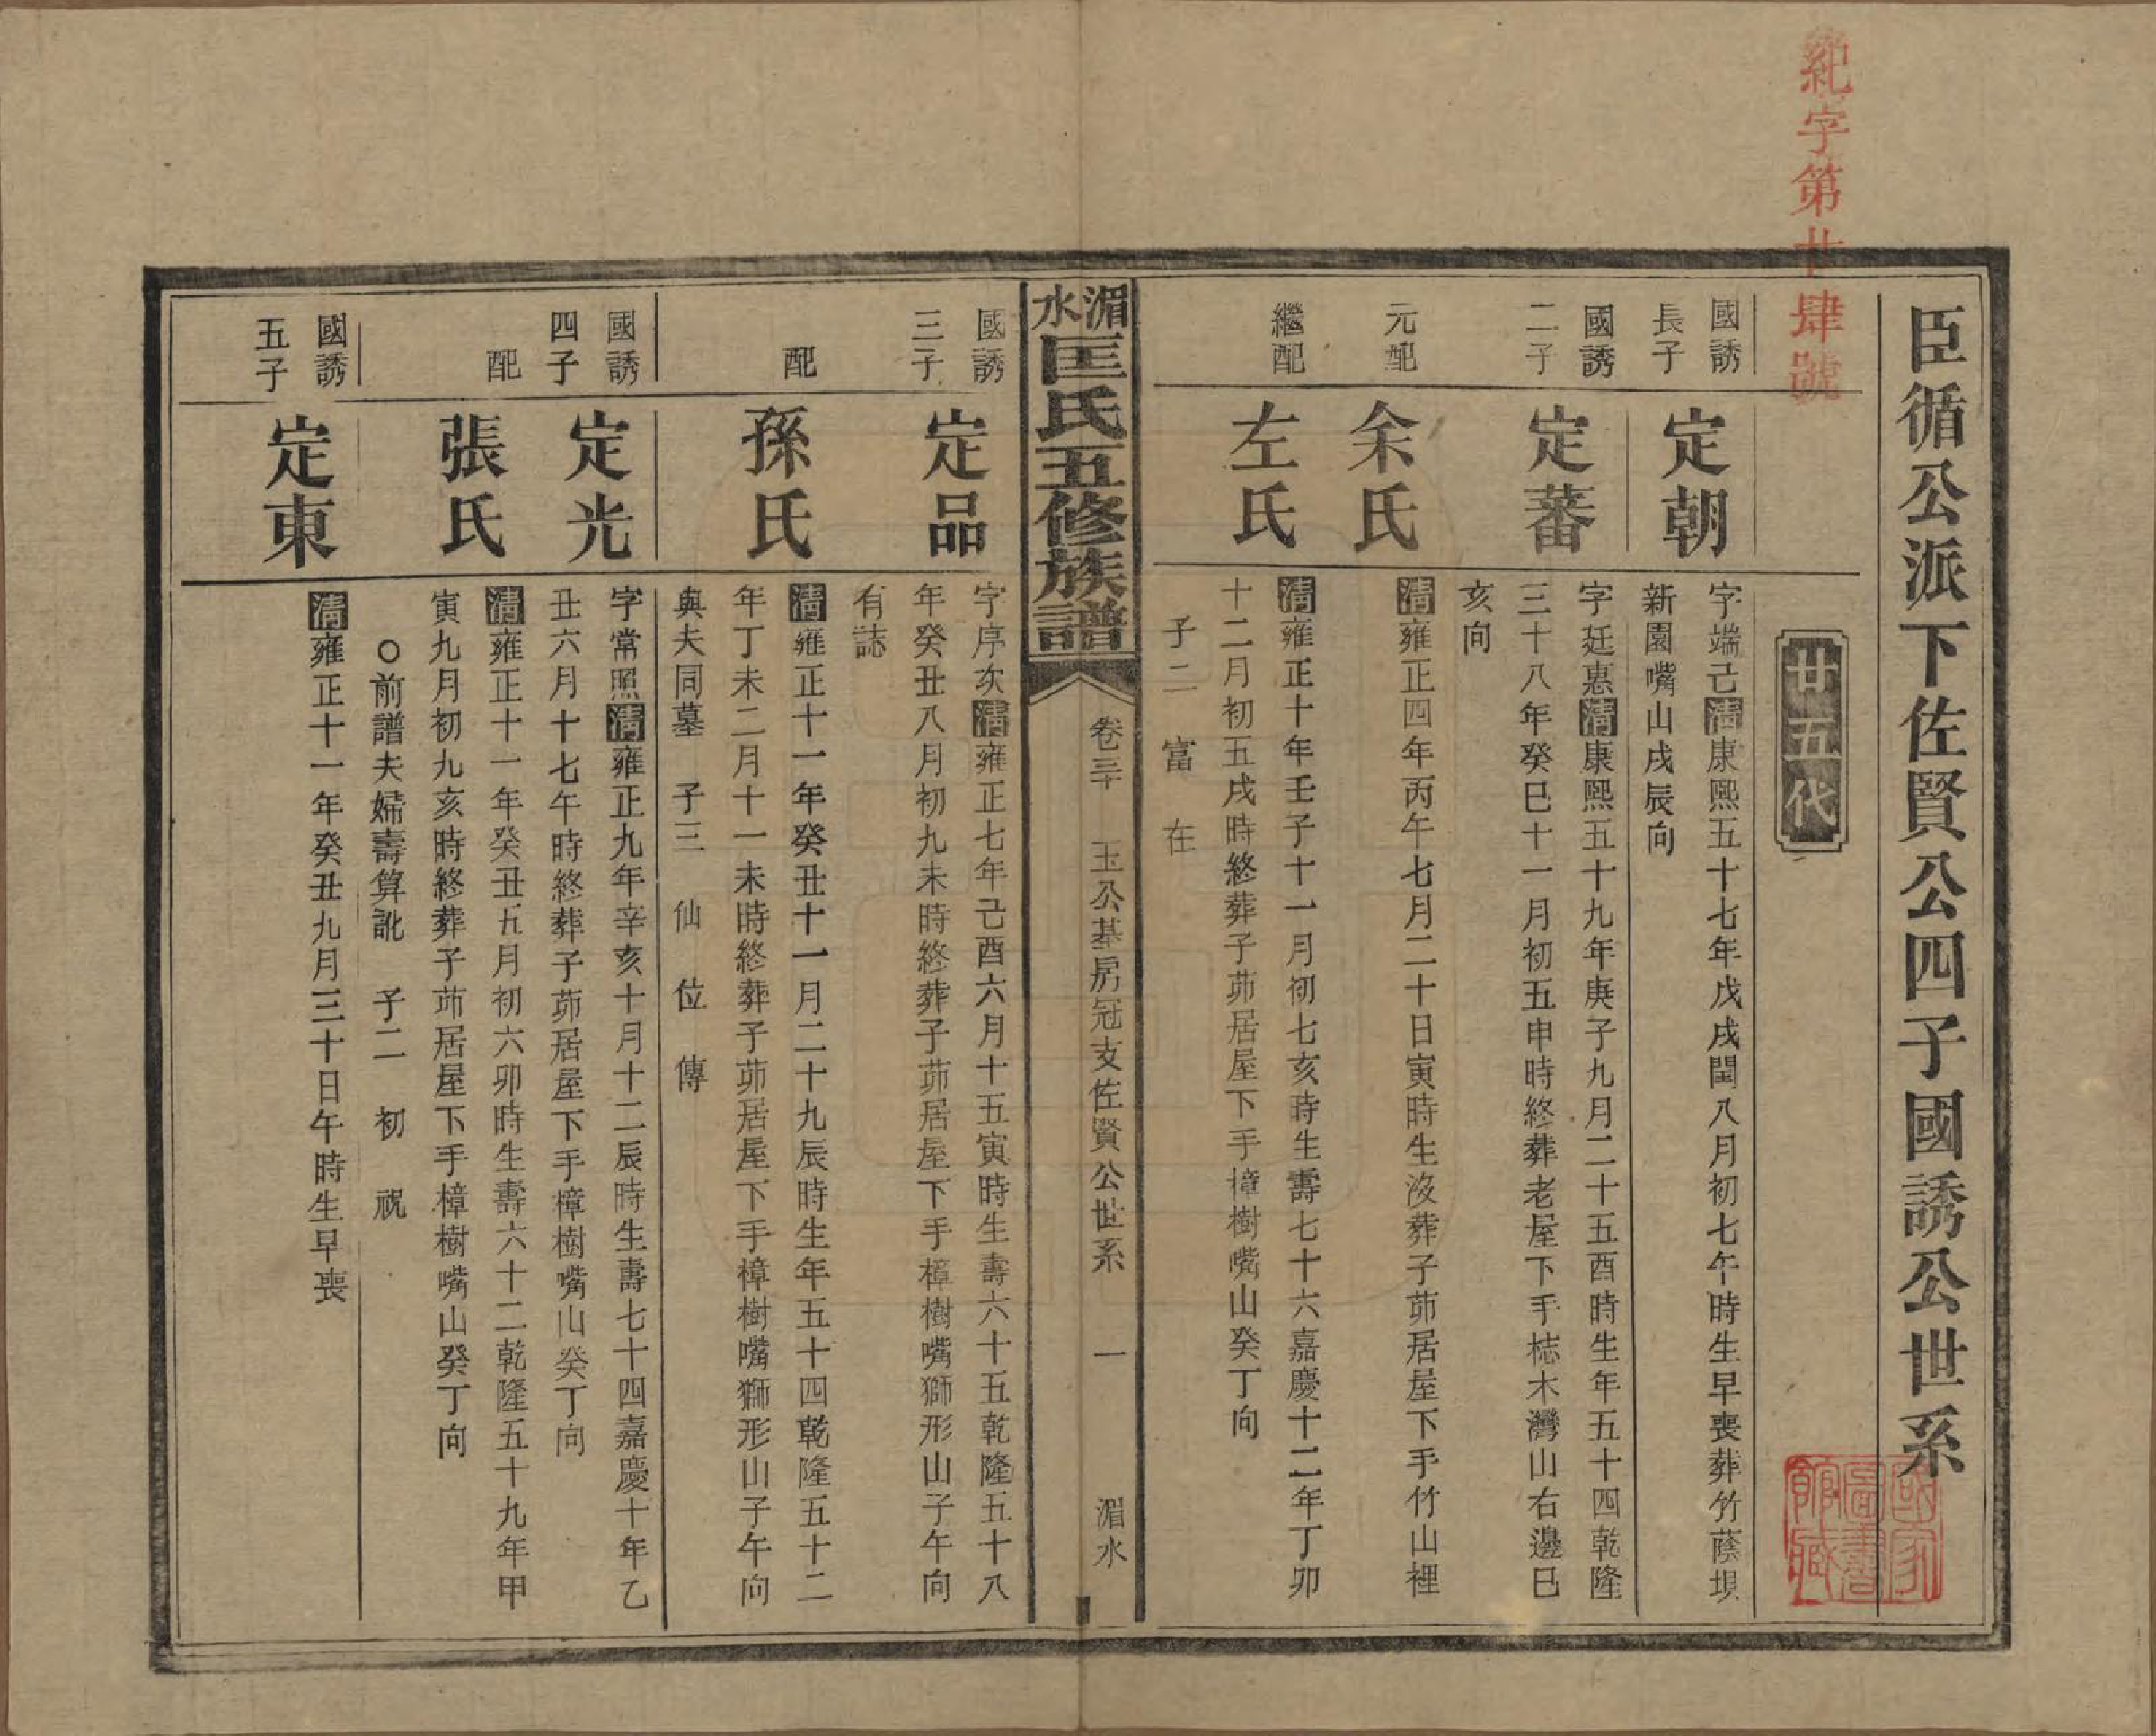 紀字第廿肆號
臣循公派下佐賢公四子國誘公世系
廿五代
國誘
長子
定朝
字端己清康熙五十七年戊戌閏八月初七午時生早喪葬竹蔭垻
新園嘴山戌辰向
國誘
二子
定蕃
字廷惠清康熙五十九年庚子九月二十五酉時生年五十四乾隆
三十八年癸巳十一月初五申時終葬老屋下手梽木灣山右邊巳
亥向
元配
余氏
清雍正四年丙午七月二十日寅時生沒葬子茆居屋下手竹山裡
繼配
左氏
清雍正十年壬子十一月初七亥時生壽七十六嘉慶十二年丁卯
十二月初五戌時終葬子茆居屋下手樟樹嘴山癸丁向
子二 富 在
湄水匡氏五修族譜
卷三十 玉公基房冠支佐賢公世系 一 湄水
國誘
三子
定品
字序次清雍正七年己酉六月十五寅時生壽六十五乾隆五十八
年癸丑八月初九未時終葬子茆居屋下手樟樹嘴獅形山子午向
有誌
配
孫氏
清雍正十一年癸丑十一月二十九辰時生年五十四乾隆五十二
年丁未二月十一未時終葬子茆居屋下手樟樹嘴獅形山子午向
與夫同墓 子三 仙 位 傳
國誘
四子
定光
字常照清雍正九年辛亥十月十二辰時生壽七十四嘉慶十年乙
丑六月十七午時終葬子茆居屋下手樟樹嘴山癸丁向
配
張氏
清雍正十一年癸丑五月初六卯時生壽六十二乾隆五十九年甲
寅九月初九亥時終葬子茆居屋下手樟樹嘴山癸丁向
○前譜夫婦壽算訛 子二 初 祝
國誘
五子
定東
清雍正十一年癸丑九月三十日午時生早喪
國家圖書館藏書